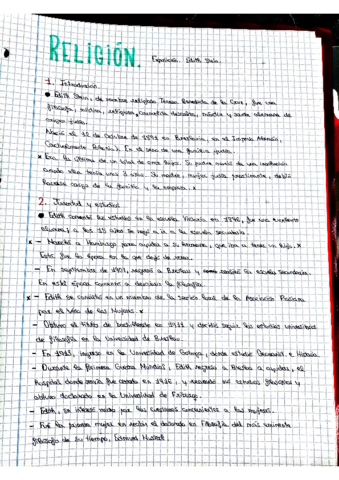 RELIGIÓN. Exposición Edith Stein.
1. Introducción
● Edith Stein, de nombre religioso Teresa Benedicta de la Cruz, fue una
filósofa, mística, religiosa, carmelita descalza, mártir y santa alemana de
origen judío.
Nació el 12 de Octubre de 1891 en Breslavia, en el Imperio Alemán,
(actualmente Polonia). En el seno de una familia judía.
x Era la última de un total de once hijos. Su padre murió de una
cuando ella tenía unos 3 años. Su madre, mujer judía practicante, debió
hacerse cargo de la familia y la empresa. x
2. Juventud y estudios
● Edith comenzó los estudios en la escuela Victoria en 1896, fue una excelente
x — Marchó a Hamburgo para ayudar a su hermana, que iba a tener un hijo. x
Esta fue la época en la que dejó de rezar.
— En septiembre de 1907, regresó a Breslau y la escuela secundaria.
En esta época comenzó a descubrir la filosofía.
x — Edith se convirtió en un miembro de la sección local de la Asociación Prusiana
por el Voto de las Mujeres. x
— Obtuvo el título de bachillerato en 1911 y decidió seguir los estudios universitarios
de filosofía en la Universidad de Breslau.
— En 1913, ingresó en la Universidad de Gotinga, donde estudió Germanística e Historia.
— Durante la Primera Guerra Mundial, Edith regresó a Breslau a ayudar, el
hospital donde servía fue cerrado en 1916, y reanudó sus estudios filosóficos y
obtuvo doctorado en la Universidad de Friburgo.
— Edith, se interesó mucho por las cuestiones concernientes a las mujeres.
— Fue la primera mujer en recibir el doctorado en Filosofía del más eminente
filósofo de su tiempo, Edmund Husserl.